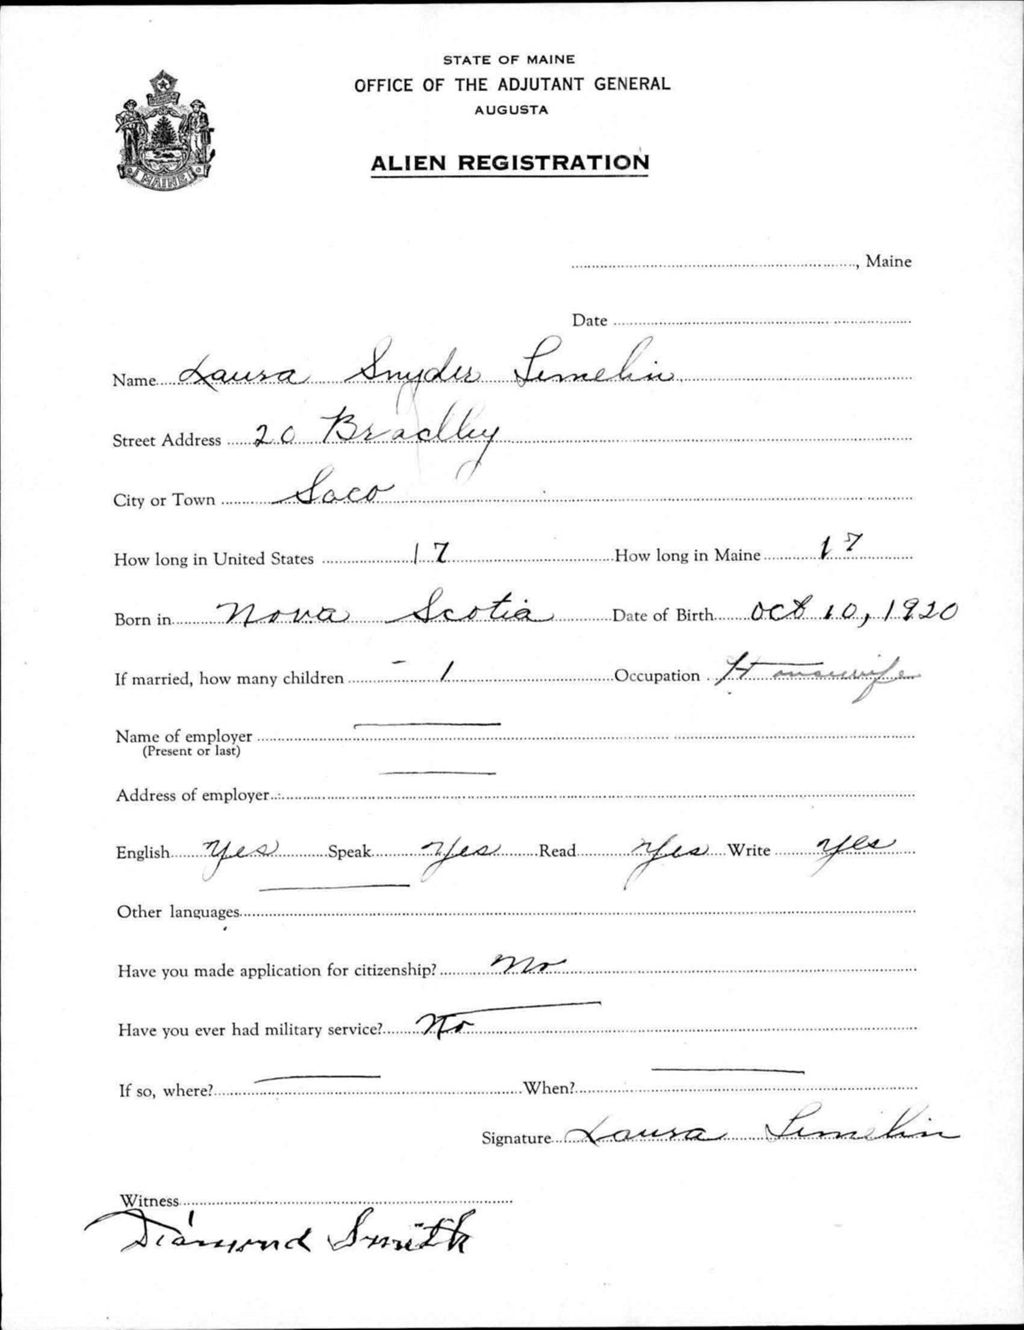 STATE OF MAINE
OFFICE OF THE ADJUTANT GENERAL
AUGUSTA
ALIEN REGISTRATION
MAINE
, Maine
Date
Name Laura Snyder Limelin
Street Address 20 Bradley
City or Town Saco
How long in United States 17 How long in Maine 17
Born in Nova Scotia Date of Birth Oct 10, 1920
If married, how many children 1 Occupation Housewife
Name of employer
(Present or last)
Address of employer
English Yes Speak Yes Read Yes Write Yes
Other languages
Have you made application for citizenship? No
Have you ever had military service? No
If so, where? When?
Signature Laura Limelin
Witness
Diamond Smith